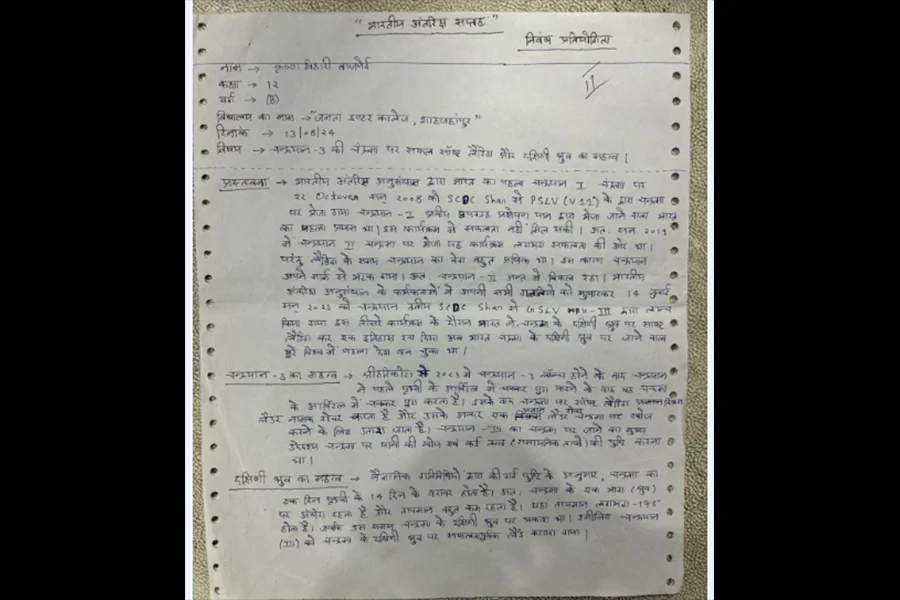 " भारतीय अंतरिक्ष सप्ताह "
निबंध प्रतियोगिता
नाम → कृष्ण बिहारी वाजपेई
कक्षा → 12
वर्ग → (B)
विद्यालय का नाम → "जनता इण्टर कालेज, शाहजहांपुर"
दिनांक → 13/08/24
विषय → चन्द्रयान-3 की चंद्रमा पर सफल सॉफ्ट लैंडिंग और दक्षिणी ध्रुव का महत्व।
11
प्रस्तावना → भारतीय अंतरिक्ष अनुसंधान द्वारा भारत का पहला चन्द्रयान I चंद्रमा पर
22 October सन् 2008 को SCDC Shar से PSLV (V11) के द्वारा चन्द्रमा
पर भेजा गया। चन्द्रयान-I प्रक्षेपण यान द्वारा भेजा जाने वाला भारत
का पहला प्रयास था। इस कार्यक्रम में सफलता नहीं मिल सकी। अतः सन 2019
में चन्द्रयान II चन्द्रमा पर भेजा यह कार्यक्रम लगभग सफलता की ओर था।
परंतु लैंडिंग के समय चन्द्रयान का वेग बहुत अधिक था। इस कारण चन्द्रयान
अपने मार्ग से भटक गया। अतः चन्द्रयान-II अन्त में विफल रहा। भारतीय
अंतरिक्ष अनुसंधान के में अपनी सभी गलतियों को सुधारकर 14 जुलाई
सन् 2023 को चन्द्रयान तृतीय SCDC Shar से GSLV MPV-III द्वारा लान्च
किया गया इस तीसरे कार्यक्रम के दौरान भारत ने चन्द्रमा के दक्षिणी ध्रुव पर साफ्ट
लैंडिंग कर एक इतिहास रच दिया अब भारत चंद्रमा के दक्षिणी ध्रुव पर जाने वाला
पूरे विश्व में पहला देश बन चुका था।
चन्द्रयान-3 का महत्व → श्रीहरिकोटा से 2023 में चन्द्रयान-3 लॉन्च होने के बाद चन्द्रयान
ने पहले पृथ्वी के आर्बिटल में चक्कर पूरा करने के बाद वह चन्द्रमा
के आर्बिटल में चक्कर पूरा करता है। इसके बाद चन्द्रमा पर सॉफ्ट लैंडिंग विक्रम
लैंडर नामक रोवर करता है और उसके अन्दर एक चन्द्रमा पर खोज
करने के लिए उतारा जाता है। चन्द्रयान-III का चन्द्रमा पर जाने का मुख्य
उद्देश्य चन्द्रमा पर पानी की खोज एवं कई तत्व (रासायनिक तत्वों) की पुष्टि करना
था।
दक्षिणी ध्रुव का महत्व → वैज्ञानिक गतिविधियों द्वारा की गई पुष्टि के अनुसार, चन्द्रमा का
एक दिन पृथ्वी के 14 दिन के बराबर होता है। अतः चन्द्रमा के एक भाग (ध्रुव)
पर अंधेरा रहता है और तापमान बहुत कम रहता है। यहां तापमान लगभग
होता है। जबकि इस समय चन्द्रमा के दक्षिणी ध्रुव पर प्रकाश था। इसीलिए चन्द्रयान
(III) को चन्द्रमा के दक्षिणी ध्रुव पर सफलतापूर्वक लैंड कराया गया।